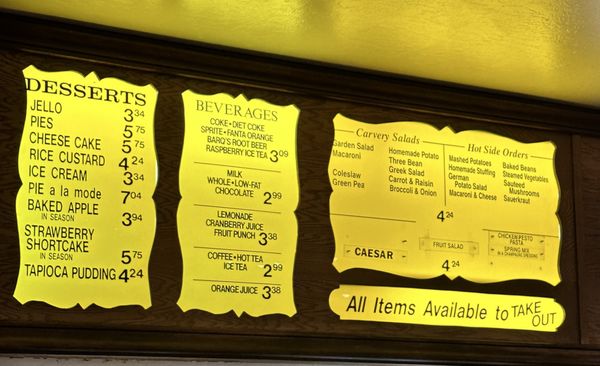 DESSERTS
JELLO 3 34
PIES 5 75
CHEESE CAKE 5 75
RICE CUSTARD 4 24
ICE CREAM 3 34
PIE a la mode 7 04
BAKED APPLE 3 94
IN SEASON
STRAWBERRY
SHORTCAKE
IN SEASON 5 75
TAPIOCA PUDDING 4 24
BEVERAGES
COKE • DIET COKE
SPRITE • FANTA ORANGE
BARQ'S ROOT BEER
RASPBERRY ICE TEA 3 09
MILK
WHOLE • LOW-FAT
CHOCOLATE 2 99
LEMONADE
CRANBERRY JUICE
FRUIT PUNCH 3 38
COFFEE • HOT TEA
ICE TEA 2 99
ORANGE JUICE 3 38
Carvery Salads
Garden Salad
Macaroni
Coleslaw
Green Pea
Homemade Potato
Three Bean
Greek Salad
Carrot & Raisin
Broccoli & Onion
Hot Side Orders
Mashed Potatoes
Homemade Stuffing
German
Potato Salad
Macaroni & Cheese
Baked Beans
Steamed Vegetables
Sauteed
Mushrooms
Sauerkraut
4 24
CAESAR
FRUIT SALAD
CHICKEN PESTO
PASTA
SPRING MIX
IN A CHAMPAGNE DRESSING
4 24
All Items Available to TAKE
OUT